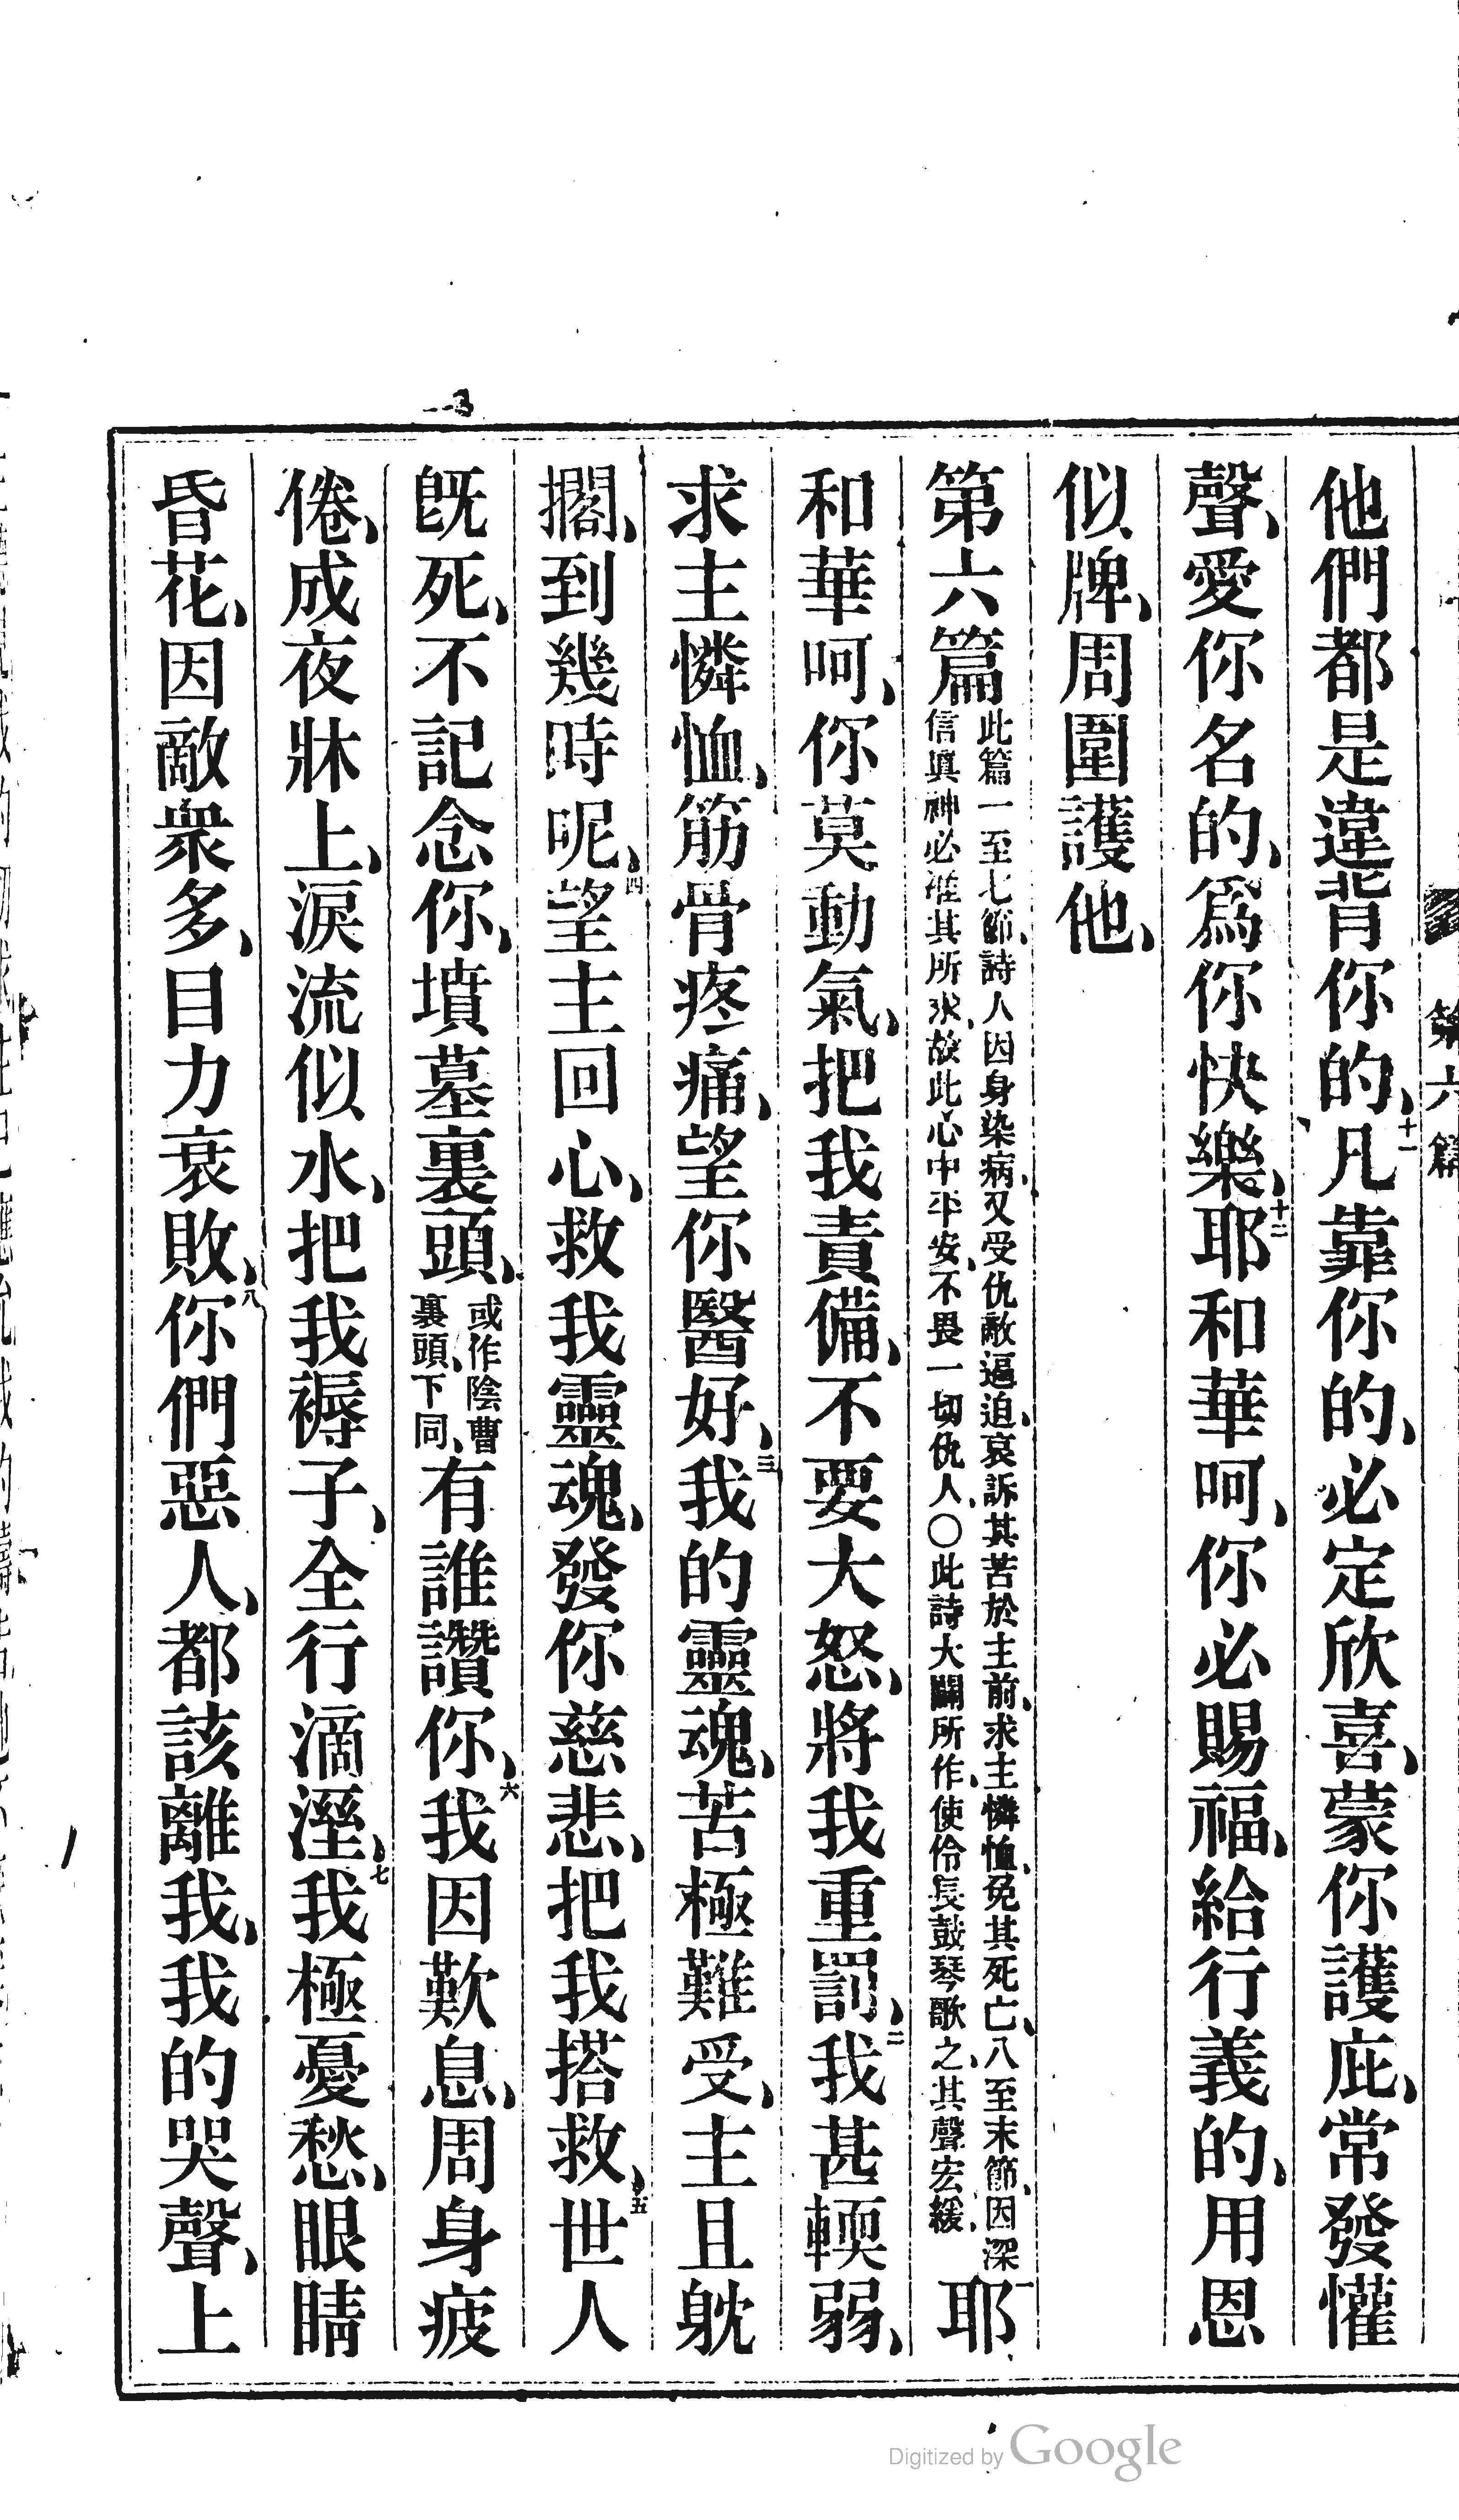 第六篇
他們都是違背你的、十一凡靠你的、必定欣喜、蒙你護庇、常發懽
聲、愛你名的、爲你快樂、十二耶和華呵、你必賜福、給行義的、用恩
似牌、周圍護他、
第六篇
此篇一至七節、詩人因身染病、又受仇敵逼迫、哀訴其苦於主前、求主憐恤、免其死亡、八至末節、因深
信眞神必准其所求、故此心中平安、不畏一切仇人、○此詩大闢所作、使伶長鼓琴歌之、其聲宏緩、
一耶
和華呵、你莫動氣、把我責備、不要大怒、將我重罰、二我甚輭弱、
求主憐恤、筋骨疼痛、望你醫好、三我的靈魂、苦極難受、主且躭
擱、到幾時呢、四望主回心、救我靈魂、發你慈悲、把我搭救、五世人
旣死、不記念你、墳墓裏頭、
或作陰曹
裏頭、下同、
有誰讚你、六我因歎息、周身疲
倦、成夜牀上、淚流似水、把我褥子、全行滴溼、七我極憂愁、眼睛
昏花、因敵衆多、目力衰敗、八你們惡人、都該離我、我的哭聲、上
Digitized by Google